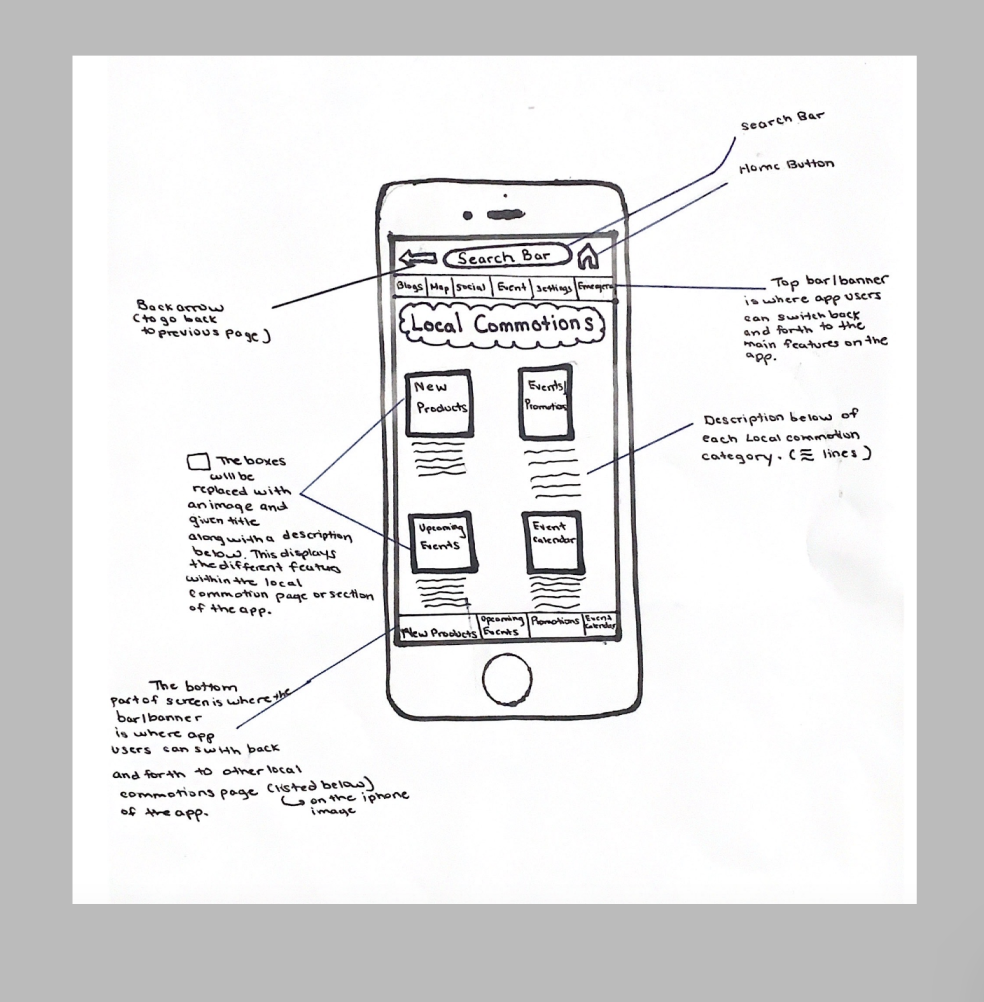 Search Bar
Home Button
Search Bar
Blogs Map Social Event Settings
Back arrow
(to go back
to previous page)
Top bar/banner
is where app users
can switch back
and forth to the
main features on the
app.
Local Commotions
New
Products
Events/
Promotion
Description below of
each Local commotion
category. (≡ lines)
The boxes
will be
replaced with
an image and
given title
along with a description
below. This displays
the different featurs
within the local
commotion page or section
of the app.
Upcoming
Events
Event
Calendar
New Products
Upcoming
Events
Promotions
Event
Calendar
The bottom
part of screen is where the
bar/banner
is where app
users can swith back
and forth to other local
commotions page (listed below)
↳ on the iphone
image
of the app.